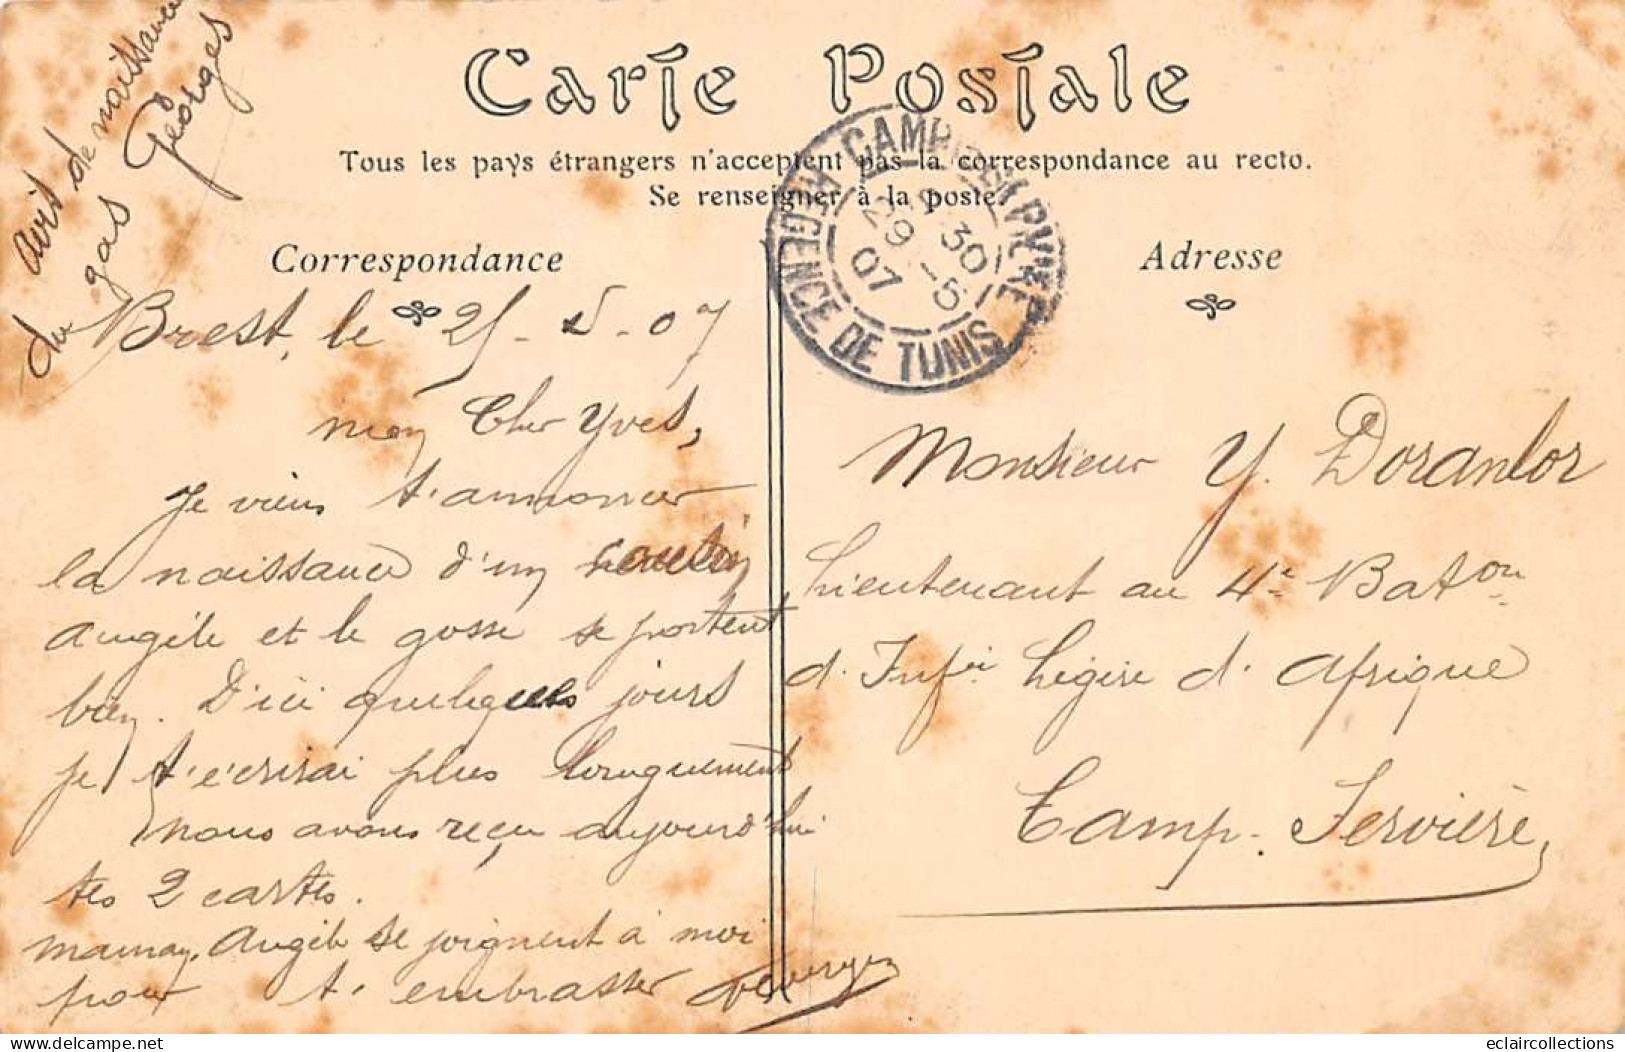 avis de naissance
du gas Georges
Carte Postale
Tous les pays étrangers n'acceptent pas la correspondance au recto.
Se renseigner à la poste.
CAMP SERVIÈRE
RÉGENCE DE TUNIS
30
29 -5
07
Correspondance
Brest, le 25-5-07
mon Cher Yves,
Je viens t'annoncer
la naissance d'un cousin
Angèle et le gosse se portent
bien. D'ici quelques jours
je t'écrirai plus longuement
nous avons reçu aujourd'hui
tes 2 cartes.
maman, Angèle se joignent à moi
pour t'embrasser
Adresse
Monsieur Y. Dorandor
Lieutenant au 4e Baton
d'Infie Légère d'Afrique
Camp-Servière
eclaircollections